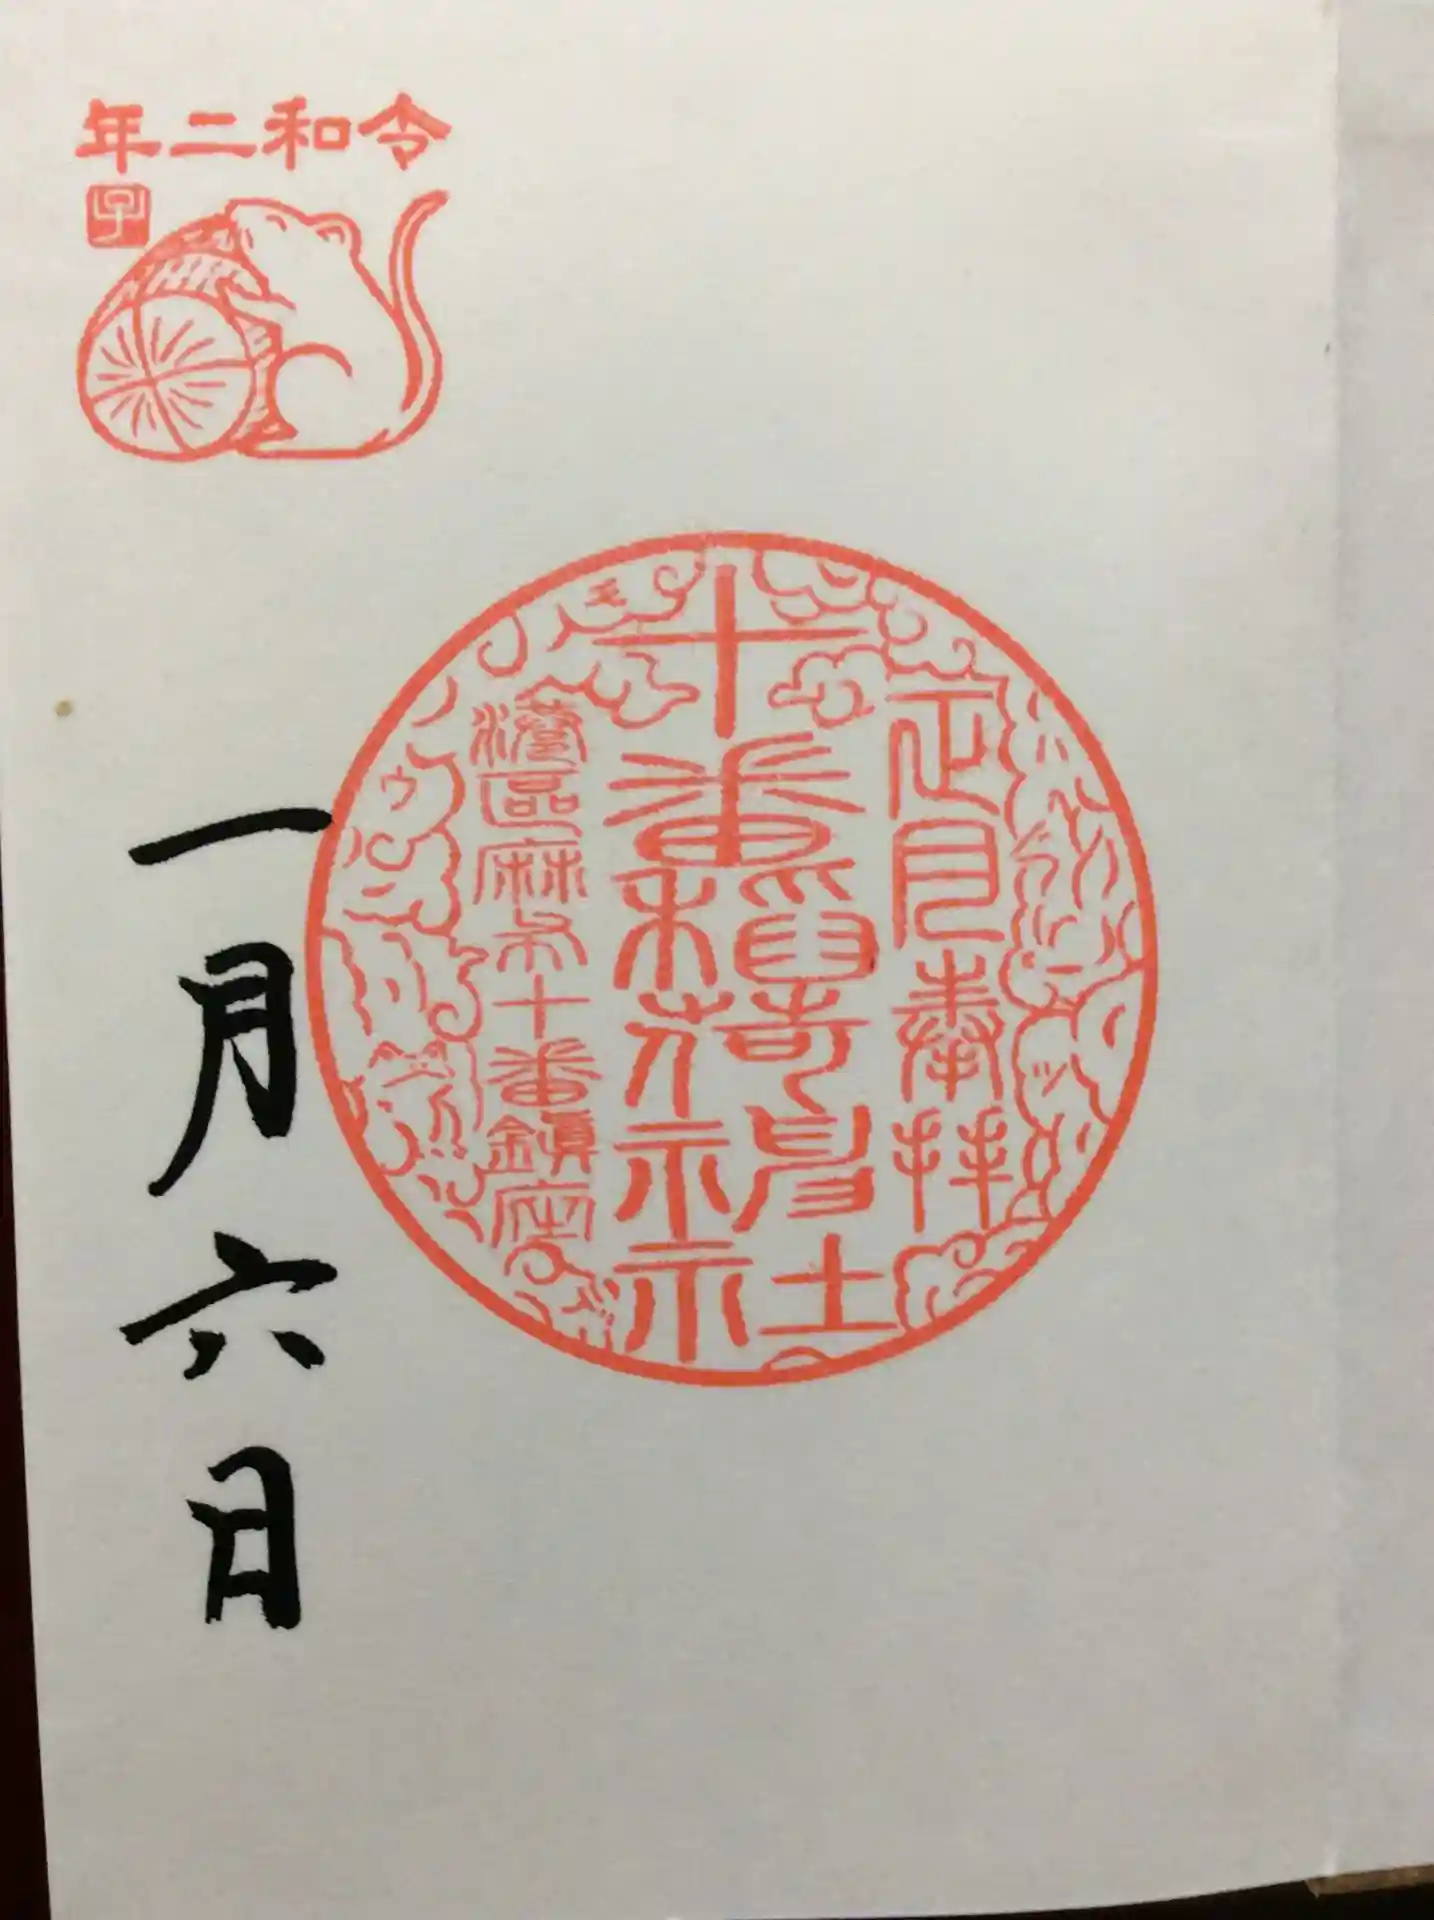 令和二年
子
正月奉拝
十番稻荷神社
港區麻布十番鎭座
一月六日